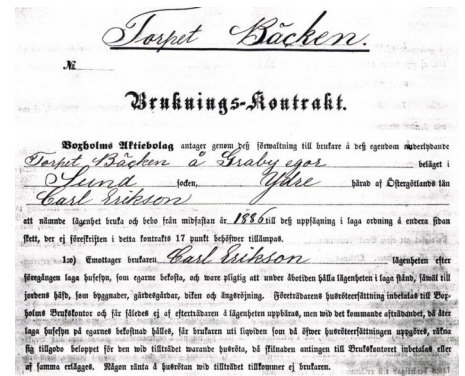 Torpet Bäcken.
№
Bruknings-Kontrakt.
Boxholms Aktiebolag antager genom deß förwaltning till brukare å deß egendom underlydande
Torpet Bäcken å Graby egor beläget i
Sund socken, Ydre härad af Östergötlands län
Carl Erikson
att nämnde lägenhet bruka och bebo från midfastan år 1886 till deß uppsägning i laga ordning å endera sidan
skett, der ej föreskriften i detta kontrakts 17 punkt behöfwer tillämpas.
1:o) Emottager brukaren Carl Erikson lägenheten efter
föregången laga husesyn, som egarne bekosta, och ware pligtig att under åbotiden hålla lägenheten i laga stånd, såwäl till
jordens häfd, som byggnader, gärdesgårdar, diken och ängsröjning. Företrädarens husröteersättning inbetalas till Box-
holms Brukskontor och får således ej af efterträdaren å lägenheten uppbäras, men wid det kommande afträdandet, då åter
laga husesyn på egarnes bekostnad hålles, får brukaren uti liquiden som då öfwer husröteersättningen uppgöres, räkna
sig tillgodo beloppet för den wid tillträdet warande husröta, då skilnaden antingen till Brukskontoret inbetalas eller
af samma erlägges. Någon ränta å husrötan wid tillträdet tillkommer ej brukaren.